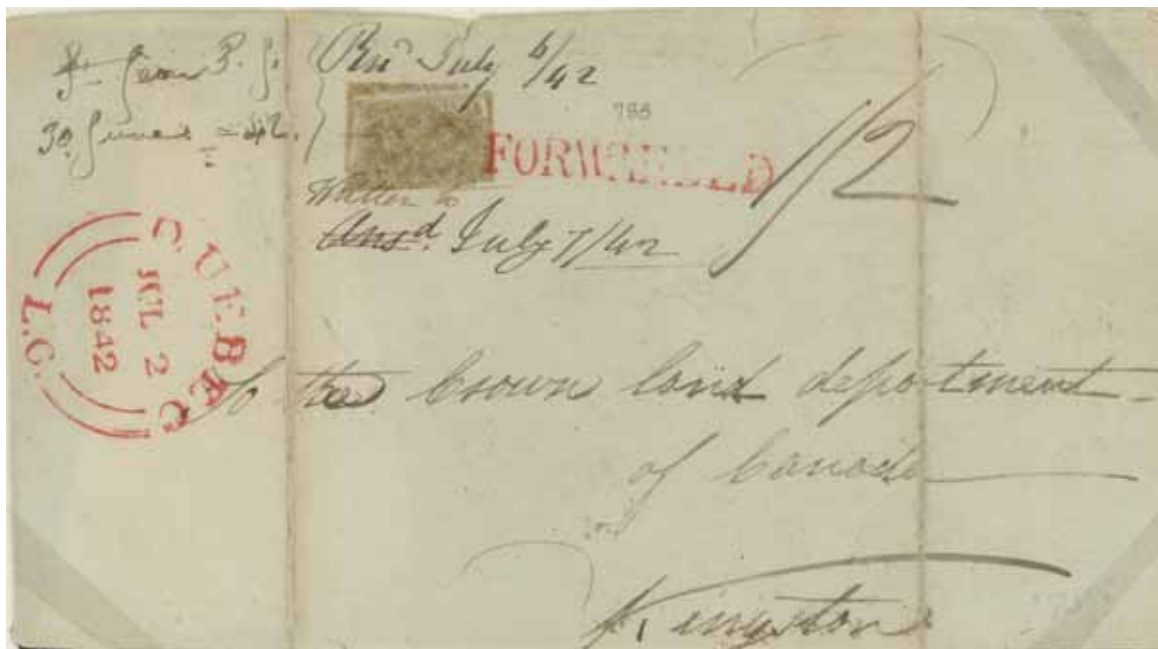 St Jean P. J.
30 Juin = 42.
July 6/42
788
FORWARDED
1/2
Written to
Ansd. July 7/42
QUEBEC
JUL 2
1842
L.C.
To the Crown land department
of Canada
Kingston